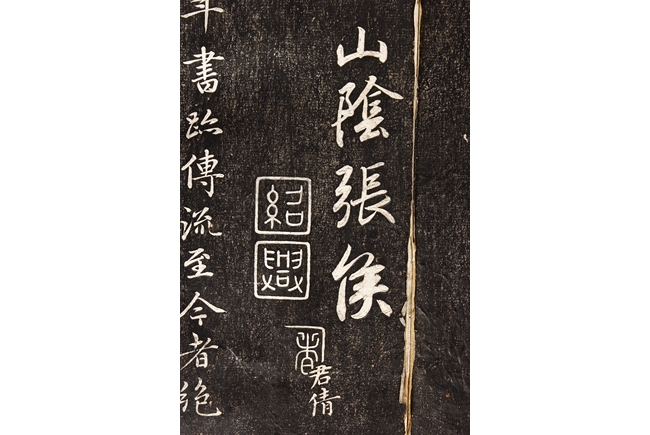 山陰張侯
紹興
君倩
年書跡傳流至今者絶